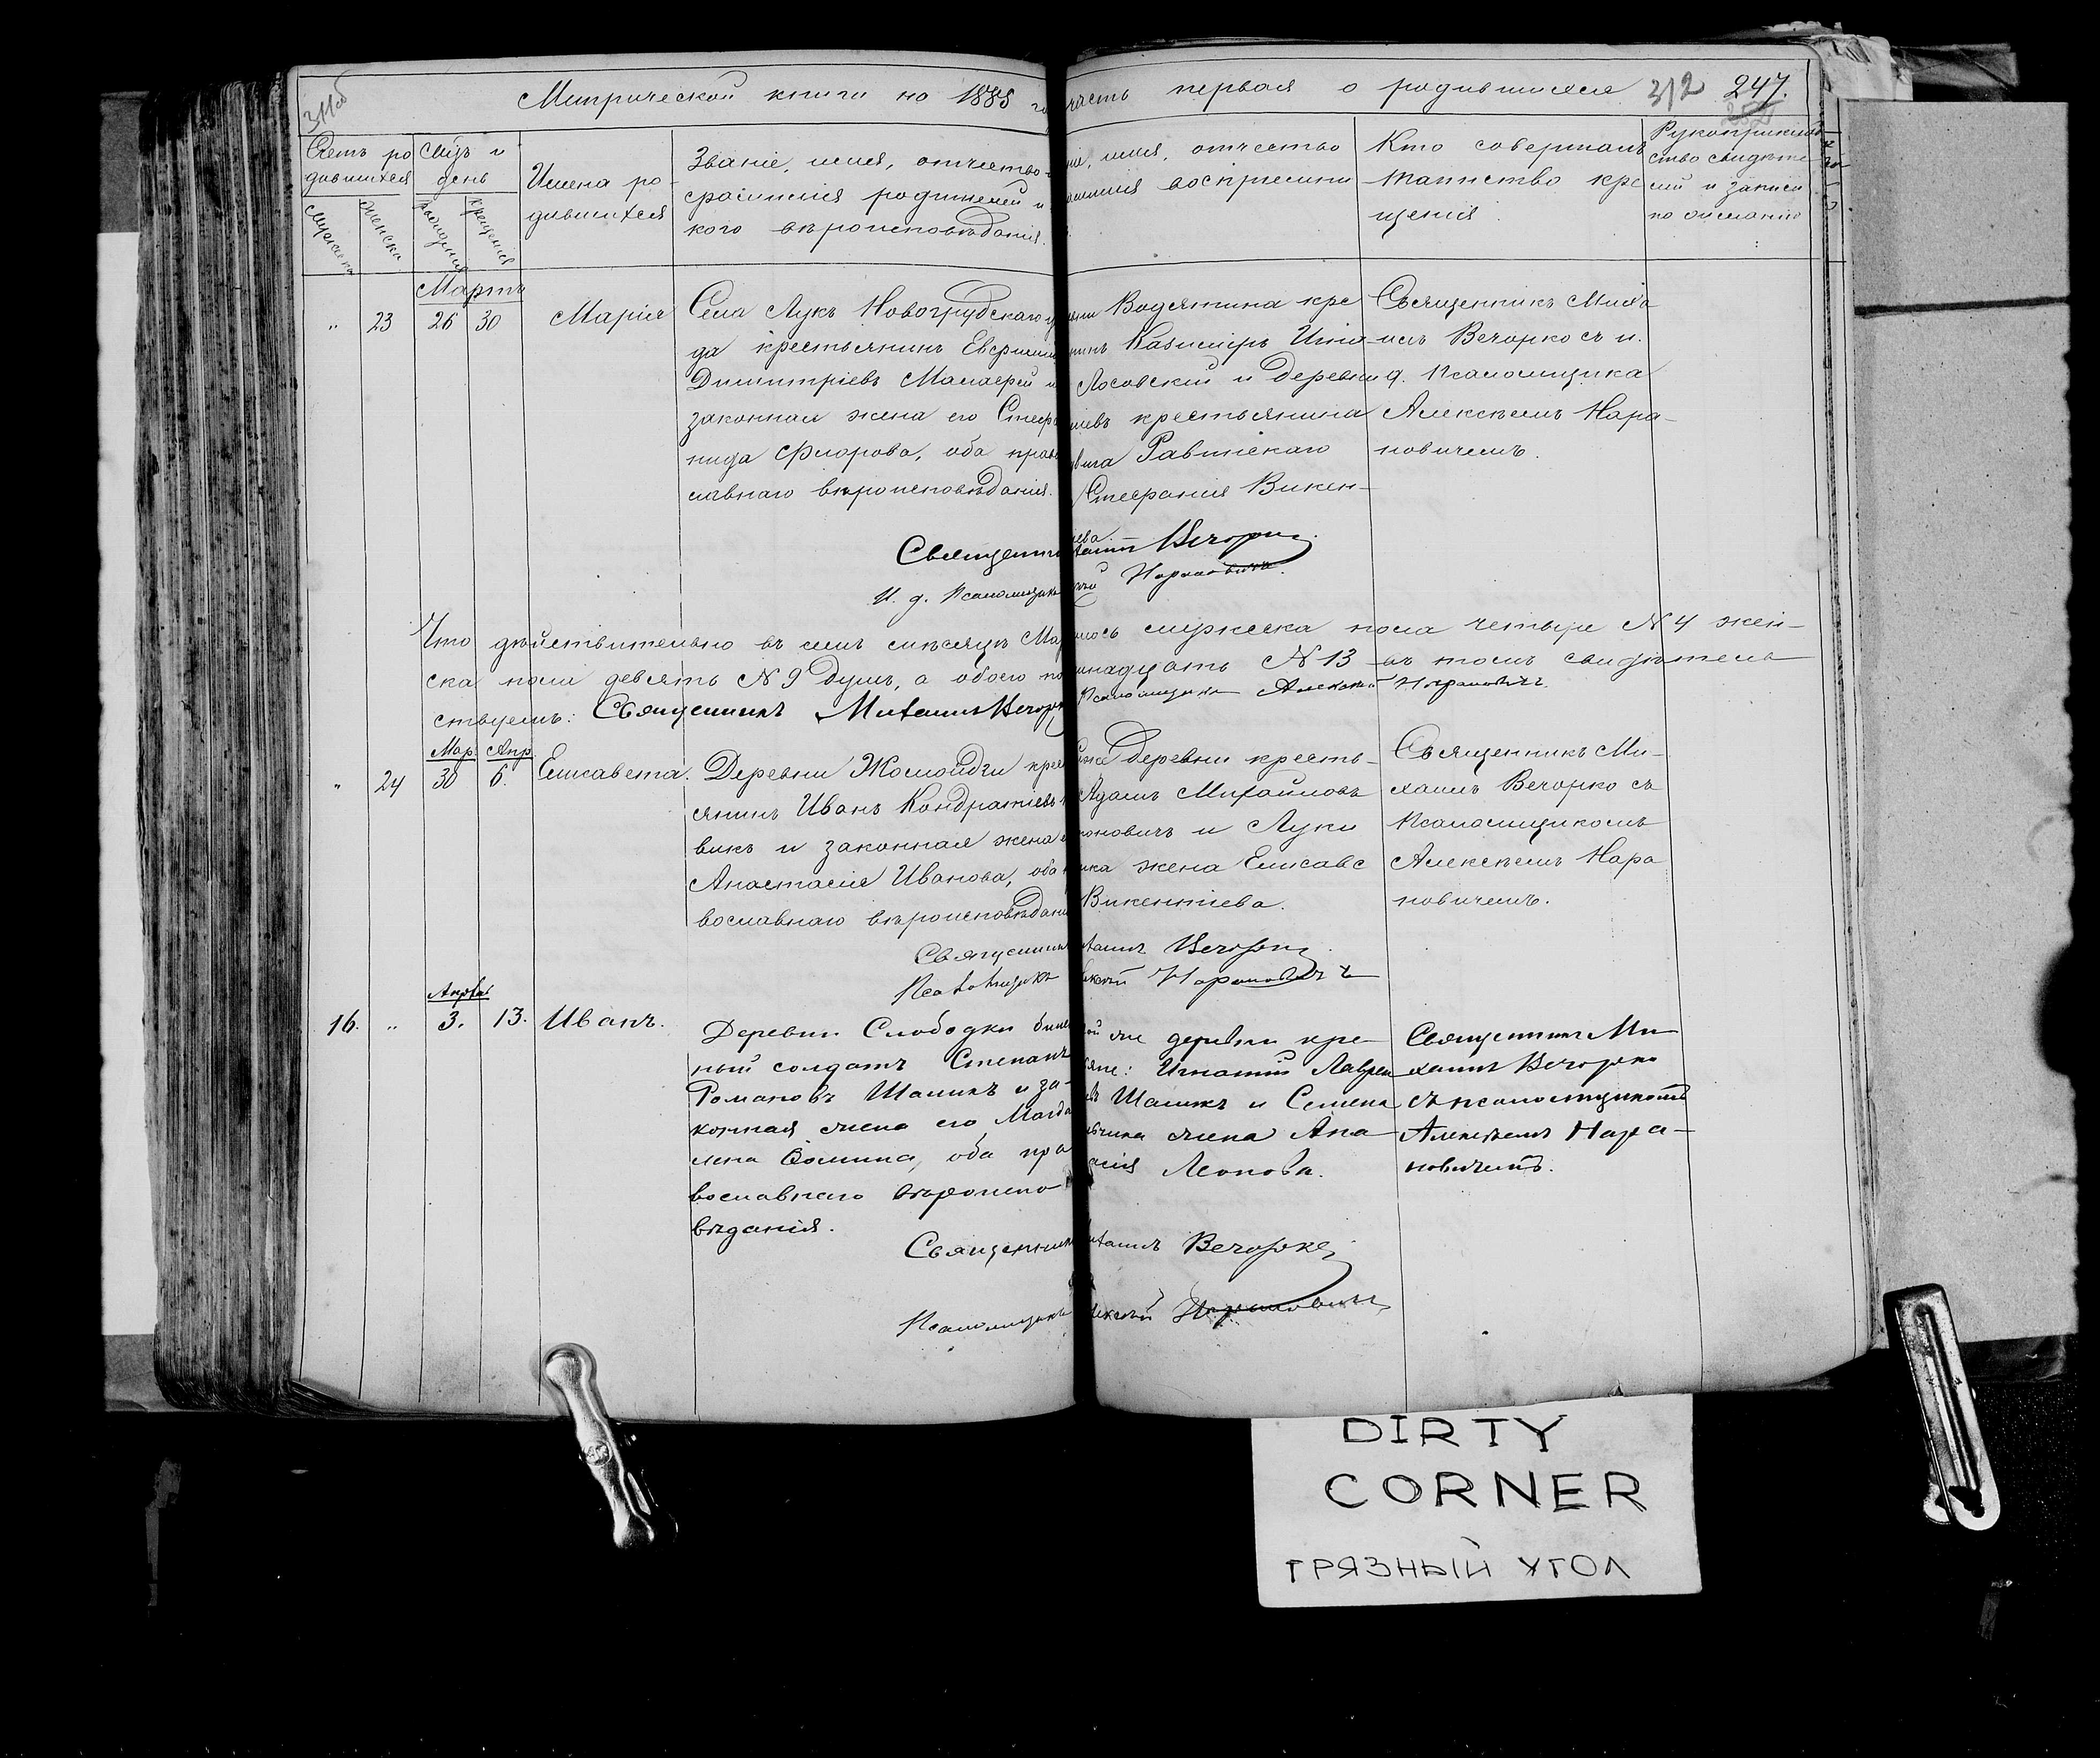 311об
Метрической книги на 1885 го
часть первая о родившихся 312 247.
Счетъ ро
дившихся
Мужеска
женска
Мцъ и
день
рожденія
крещенія
Имена ро-
дившихся
Званіе, имя, отчество и
кого вѣроисповѣданія.
имя, отчество
воспріемни
Кто совершалъ
таинство кре
щенія.
ство свидѣте
лей и записи
по желанію
Мартъ
" 23 26 30 Марія
Села Лукъ Новогрудскаго у
да крестьянинъ
Димитріевъ
законная жена его Стеф
нида Фиорова, оба прав
славнаго вѣроисповѣданія.
Водятина кре
Казиміръ Игна
Лосовскій и деревни
крестьянина
Равинскаго
Стефанія Викен-
Священникъ Миха
илъ Вечорко съ и.
д. Псаломщика
Алексѣемъ Нара-
новичемъ.
Священни Вечорко
И. д. Псаломщика Нарановичъ
Что дѣйствительно въ семъ мѣсяцѣ Ма лось мужеска пола четыре N 4 жен-
ска пола девять N 9 душъ, а обоего по надцать N 13 въ томъ свидѣтель
ствуемъ: Священникъ Михаилъ Вечорк Псаломщикъ Алексѣй Нарановичъ
Мар. Апр.
" 24 30 6. Елисавета.
Деревни Жомойдзи крес
янинъ Иванъ Кондратіевъ
викъ и законная жена
Анастасія Иванова, оба
вославнаго вѣроисповѣдан
же деревни кресть-
Адамъ Михайловъ
оновичъ и Луки
ика жена Елисаве
Викентіева.
Священникъ Ми-
хаилъ Вечорко съ
Псаломщикомъ
Алексѣемъ Нара
новичемъ.
Священник хаилъ Вечорко
Псаломщикъ ексѣй Нарановичъ
Апрѣль
16. " 3. 13. Иванъ.
Деревни Слободки
ный солдатъ Степанъ
Романовъ Шаликъ и за-
конная жена его Магда
лена Ѳомина, оба пра
вославнаго вѣроиспо
вѣданія.
ой же деревни кре-
яне: Игнатій Лаврен
въ Шаликъ и Семена
жена Ана
асія Леонова.
Священникъ Ми-
хаилъ Вечорко
съ псаломщикомъ
Алексѣемъ Нара-
новичемъ.
Священник ихаилъ Вечорко
Псаломщикъ лексѣй Нарановичъ
DIRTY
CORNER
ГРЯЗНЫЙ УГОЛ